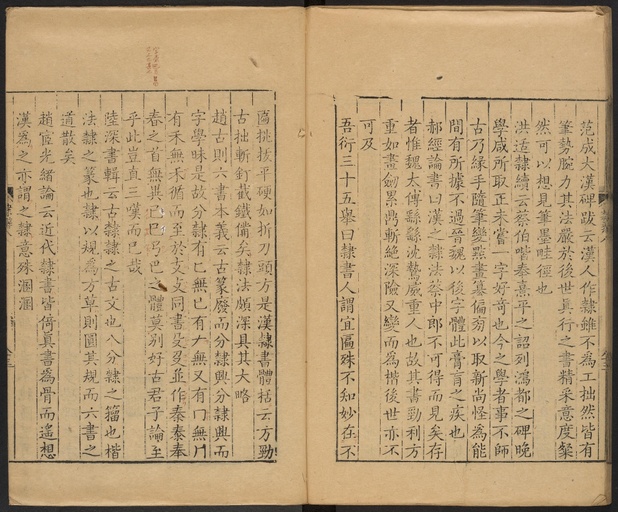 范成大漢碑跋云漢人作隸雖不為工拙然皆有
筆勢腕力其法嚴於後世真行之書精采意度粲
然可以想見筆墨畦徑也
洪适隸續云蔡伯喈奉熹平之詔列鴻都之碑晚
學咸所取正未嘗一字好奇也今之學者事不師
古乃緣手隨筆變㸃畫篡偏旁以取新尚怪為能
間有所據不過晉魏以後字體此膏肓之疾也
郝經論書曰漢之隸法蔡中郎不可得而見矣存
者惟魏太傅繇繇沈鷙威重人也故其書勁利方
重如畫劒累鼎斬絶深險又變而為楷後世亦不
可及
吾衍三十五舉曰隸書人謂宜匾殊不知妙在不
匾挑拔平硬如折刀頭方是漢隸書體括云方勁
古拙斬釘截鐵備矣隸法頗深具其大略
趙古則六書本義云古篆廢而分隸興分隸興而
字學昧是故分隸有匸無匚有𠂇無又有冂無
有禾無禾循而至於支攴同書殳𠬛並作奏泰奉
春之首無異㔾巳弓巴之體莫别好古君子論至
乎此豈直三嘆而已哉
陸深書輯云古隸隸之古文也八分隸之籀也楷
法隸之篆也隸以規為方草則圓其規而六書之
道散矣
趙宧光緒論云近代隸書皆倚真書為骨而遥想
漢為之亦謂之隸意殊溷溷